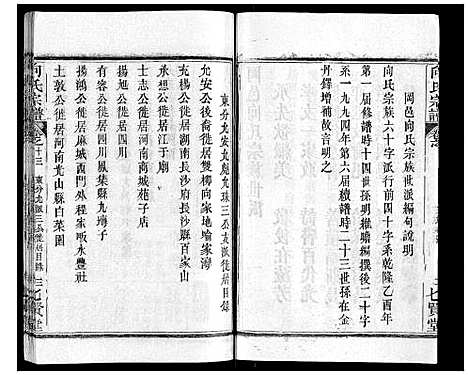 向氏宗譜
岡邑向氏宗族世派編句說明
向氏宗族六十字派行前四十字系乾隆乙酉年
第一屆修譜時十四世孫明維瞻編撰後二十字
系一九九四年第六屆續譜時二十三世孫在金
丹鐸增補故言明之
七賢堂
東分允安允魁允珠三公支派徙居目錄
允安公後裔徙居雙柳向家地喻家灣
充楊公徙居湖南長沙府長沙縣百家山
承想公徙居江于廟
士志公徙居河南商城苑子店
揚旭公徙居四川
揚露公徙居廣東韶州府九海子
揚鴻公徙居麻城西門外程家畈水豐社
土敦公徙居河南光山縣白菜園
向氏宗譜
卷之十三
東分允派三公徙居目錄
七賢堂